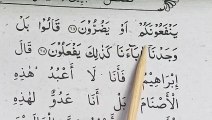 يَنْفَعُونَكُمْ أَوْ يَضُرُّونَ قَالُوا بَلْ
وَجَدْنَا آبَاءَنَا كَذٰلِكَ يَفْعَلُونَ قَالَ
إِبْرَاهِيمُ فَأَنَا لَا أَعْبُدُ هٰذِهِ
الْأَصْنَامَ بَلْ أَنَا عَدُوٌّ لِهٰذِهِ